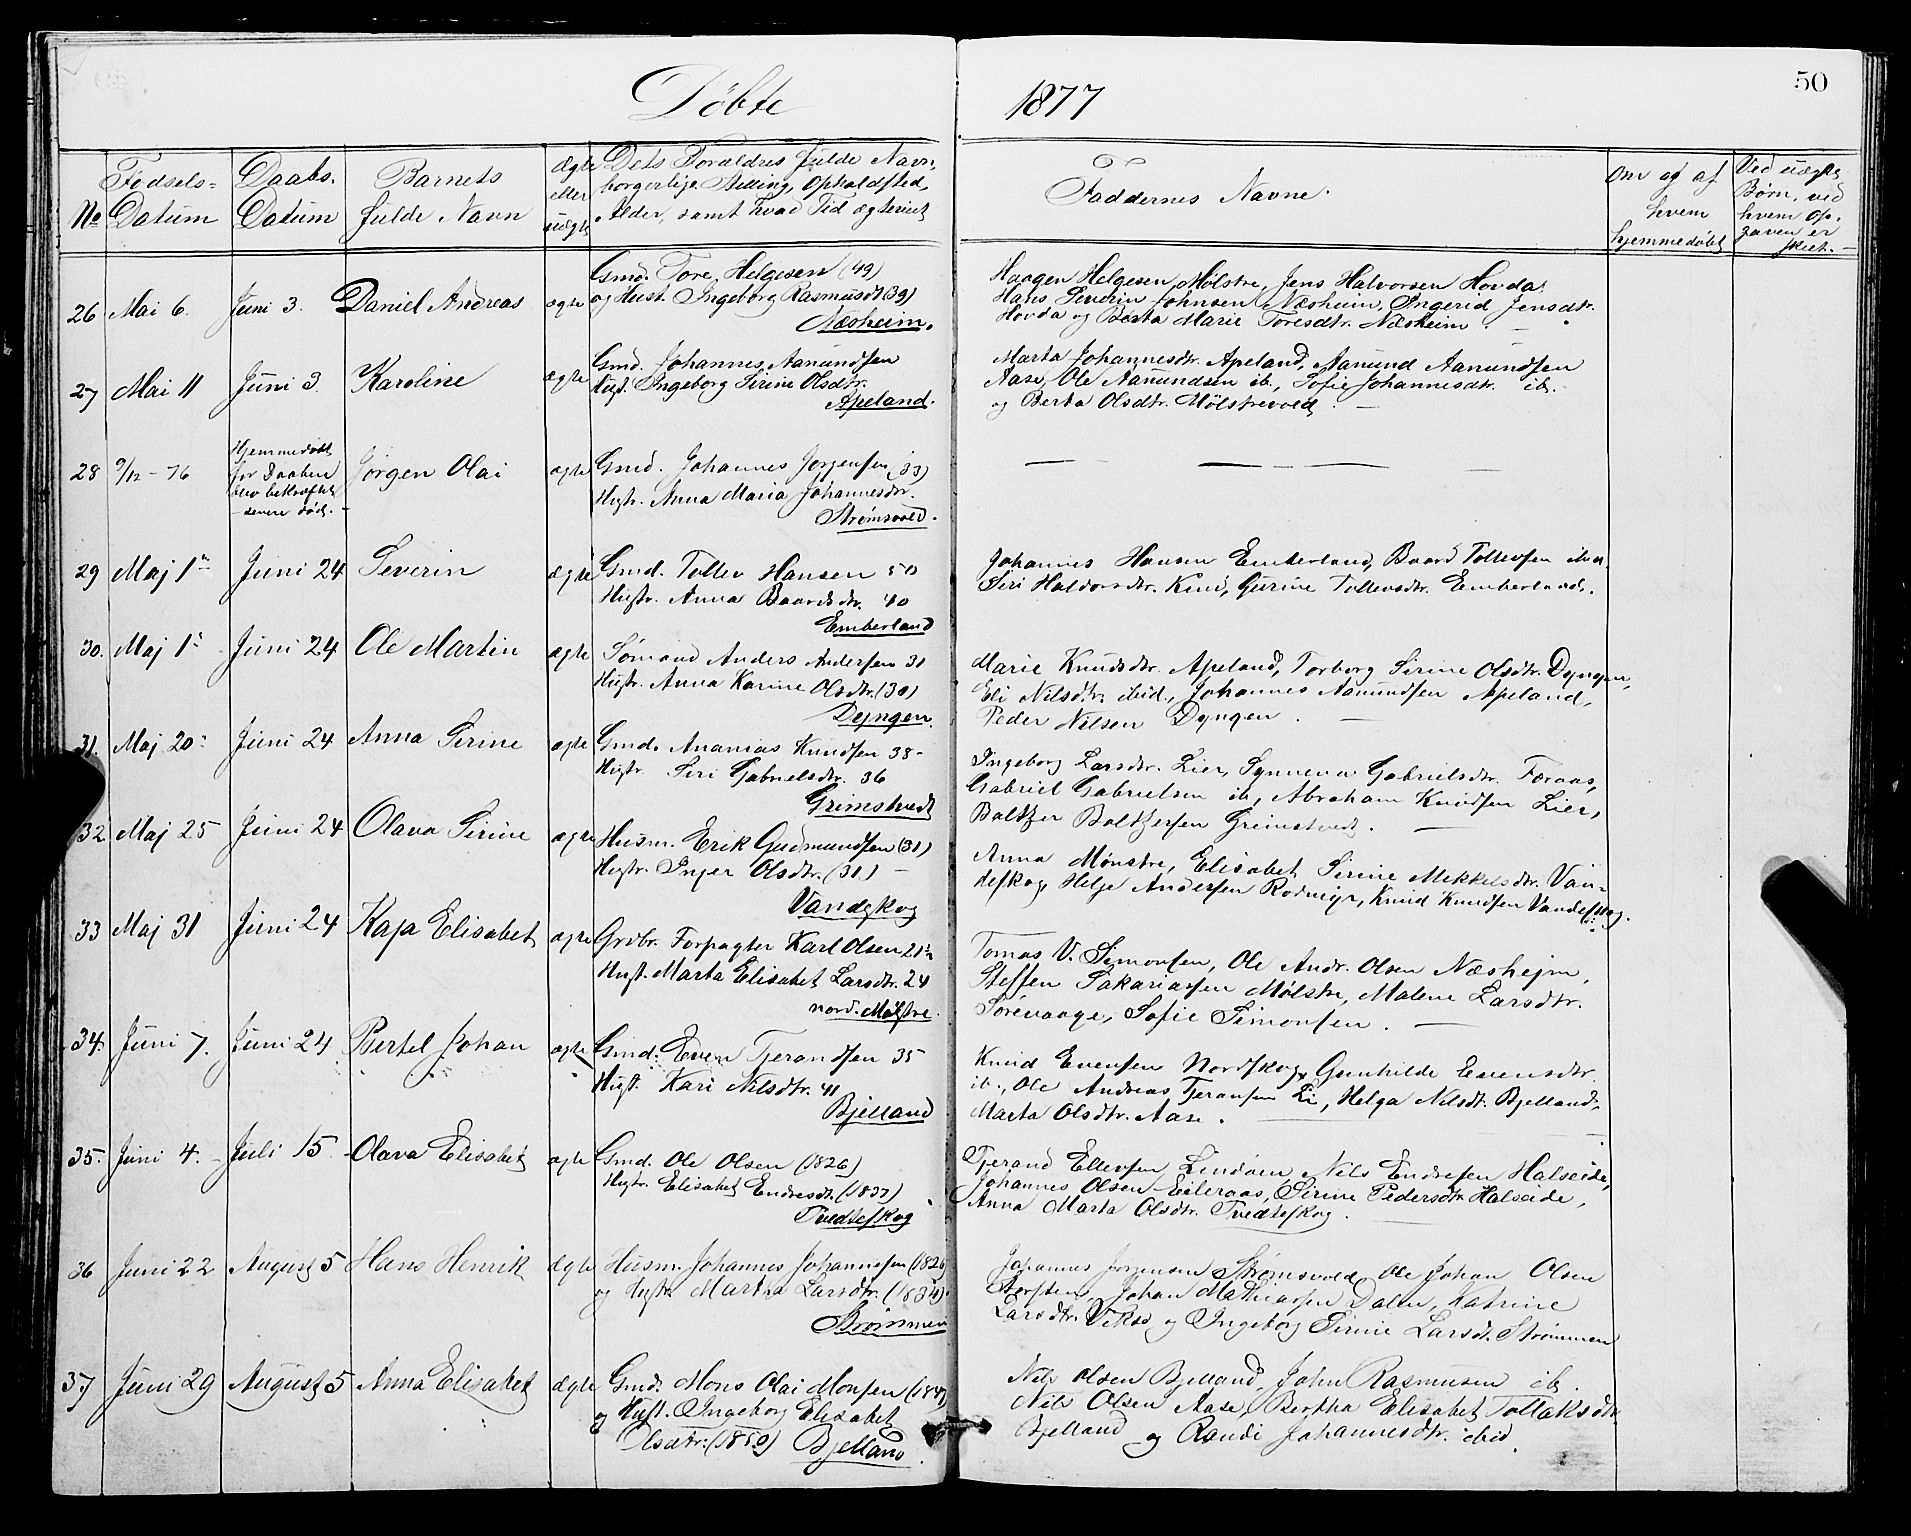 50
Døbte 1877
No Fødsels-Datum Daabs-Datum Barnets fulde Navn ægte eller uægte Dets Forældres fulde Navn, borgerlige Stilling, Opholdssted, Alder, samt hvad Tid ægteviet Faddernes Navne. Om og af hvem hjemmedøbt Ved uægte Børn, ved hvem Opgaven er skeet.
26 Mai 6. Juni 3. Daniel Andreas ægte Gmd. Tore Helgesen (49)
og Hust. Ingeborg Rasmusdt (39)
Næsheim.
Haagen Helgesen Mølstre, Jens Halvorsen Hovda,
Hans Severin Johnsen Næsheim, Ingerid Jensdtr.
Hovda og Berta Marie Toresdtr. Næsheim
27 Mai 11 Juni 3. Karoline ægte Gmd. Johannes Aanundsen
Hust. Ingeborg Sirine Olsdtr.
Apeland.
Marta Johannesdtr. Apeland, Aanund Aanundsen
Aase, Ole Aanundsen ib., Sofie Johannesdtr. ib.
og Berta Olsdtr. Mølstrevold.
28 9/12 - 76 Hjemmedøbt
før Daaben
blev bekræftet
- senere død. -
Jørgen Olai ægte Gmd. Johannes Jørgensen (33)
Hustr. Anna Maria Johannesdtr.
Strømsvold.
29 Maj 1ste Juni 24 Severin ægte Gmd. Tollev Hansen 50
Hustr. Anna Baardsdtr. 40
Emberland
Johannes Hansen Emberland, Baard Tollevsen ibid.
Siri Haldorsdtr. Kind, Gurine Tollevsdtr. Emberland.
30. Maj 1ste Juni 24 Ole Martin ægte Sømand Anders Andersen 31
Hustr. Anna Karine Olsdtr. (30)
Dyngen.
Marie Knudsdtr. Apeland, Torborg Sirine Olsdtr. Dyngen,
Eli Nilsdtr. ibid., Johannes Aanundsen Apeland,
Peder Nilsen Dyngen.
31. Maj 20 Juni 24 Anna Sirine ægte Gmd. Ananias Knudsen 38-
Hustr. Siri Gabrielsdtr. 36
Grimstvedt
Ingeborg Larsdtr. Lier, Synneva Gabrielsdtr. Føraas,
Gabriel Gabrielsen ib, Abraham Knudsen Lier,
Baltzer Baltzersen Grimstvedt.
32 Maj 25 Juni 24 Olava Sirine ægte Husm. Erik Gudmundsen (31)
Hustr. Inger Olsdtr. (31) -
Vandeskog
Anna Mønstre, Elisabet Sirine Mikkelsdtr. Van-
deskog, Helge Andersen Rødmyr, Knud Knudsen Vandeskog.
33 Maj 31 Juni 24 Kaja Elisabet ægte Grdbr. Forpagter Karl Olsen 21
Hust. Marta Elisabet Larsdtr. 24
nord. Mølstre.
Tomas V. Simonsen, Ole Andr. Olsen Næshejm,
Steffen Sakariassen Mølstre, Malene Larsdtr.
Sørevaage, Sofie Simonsen.
34. Juni 7. Juni 24 Bertel Johan ægte Gmd. Even Tjerandsen 35
Hust. Kari Nilsdtr. 41
Bjelland
Knud Evensen Nordskog, Gunhilde Evensdtr.
ib., Ole Andreas Tjeransen Li, Helga Nilsdt. Bjelland,
Marta Olsdtr. Aase.
35. Juni 4. Juli 15 Olava Elisabet ægte Gmd. Ole Olsen (1826)
Hustr. Elisabet Endresdt. (1832)
Tvedteskog
Tjerand Ellevsen Lindøen, Nils Endresen Halseide,
Johannes Olsen Eileraas, Sirine Pedersdtr. Halseide,
Anna Marta Olsdtr. Tvedteskog.
36 Juni 22 August 5 Hans Henrik ægte Husm. Johannes Johannessen (1826)
og Hustr. Martha Larsdtr. (1834).
Strømmen
Johannes Jørgensen Strømsvold, Ole Johan Olsen
Johan Mathiassen Dalen, Katrine
Larsdtr. Vikse og Ingeborg Sirine Larsdt. Strømmen
37 Juni 29 August 5 Anna Elisabet ægte Gmd. Mons Olai Monsen (1847)
og Hust. Ingeborg Elisabet
Olsdtr. (1850) Bjelland.
Nils Olsen Bjelland, John Rasmusen ib.
Nils Olsen Aase, Bertha Elisabet Tollaksdtr
Bjelland og Randi Johannesdtr. ibid.